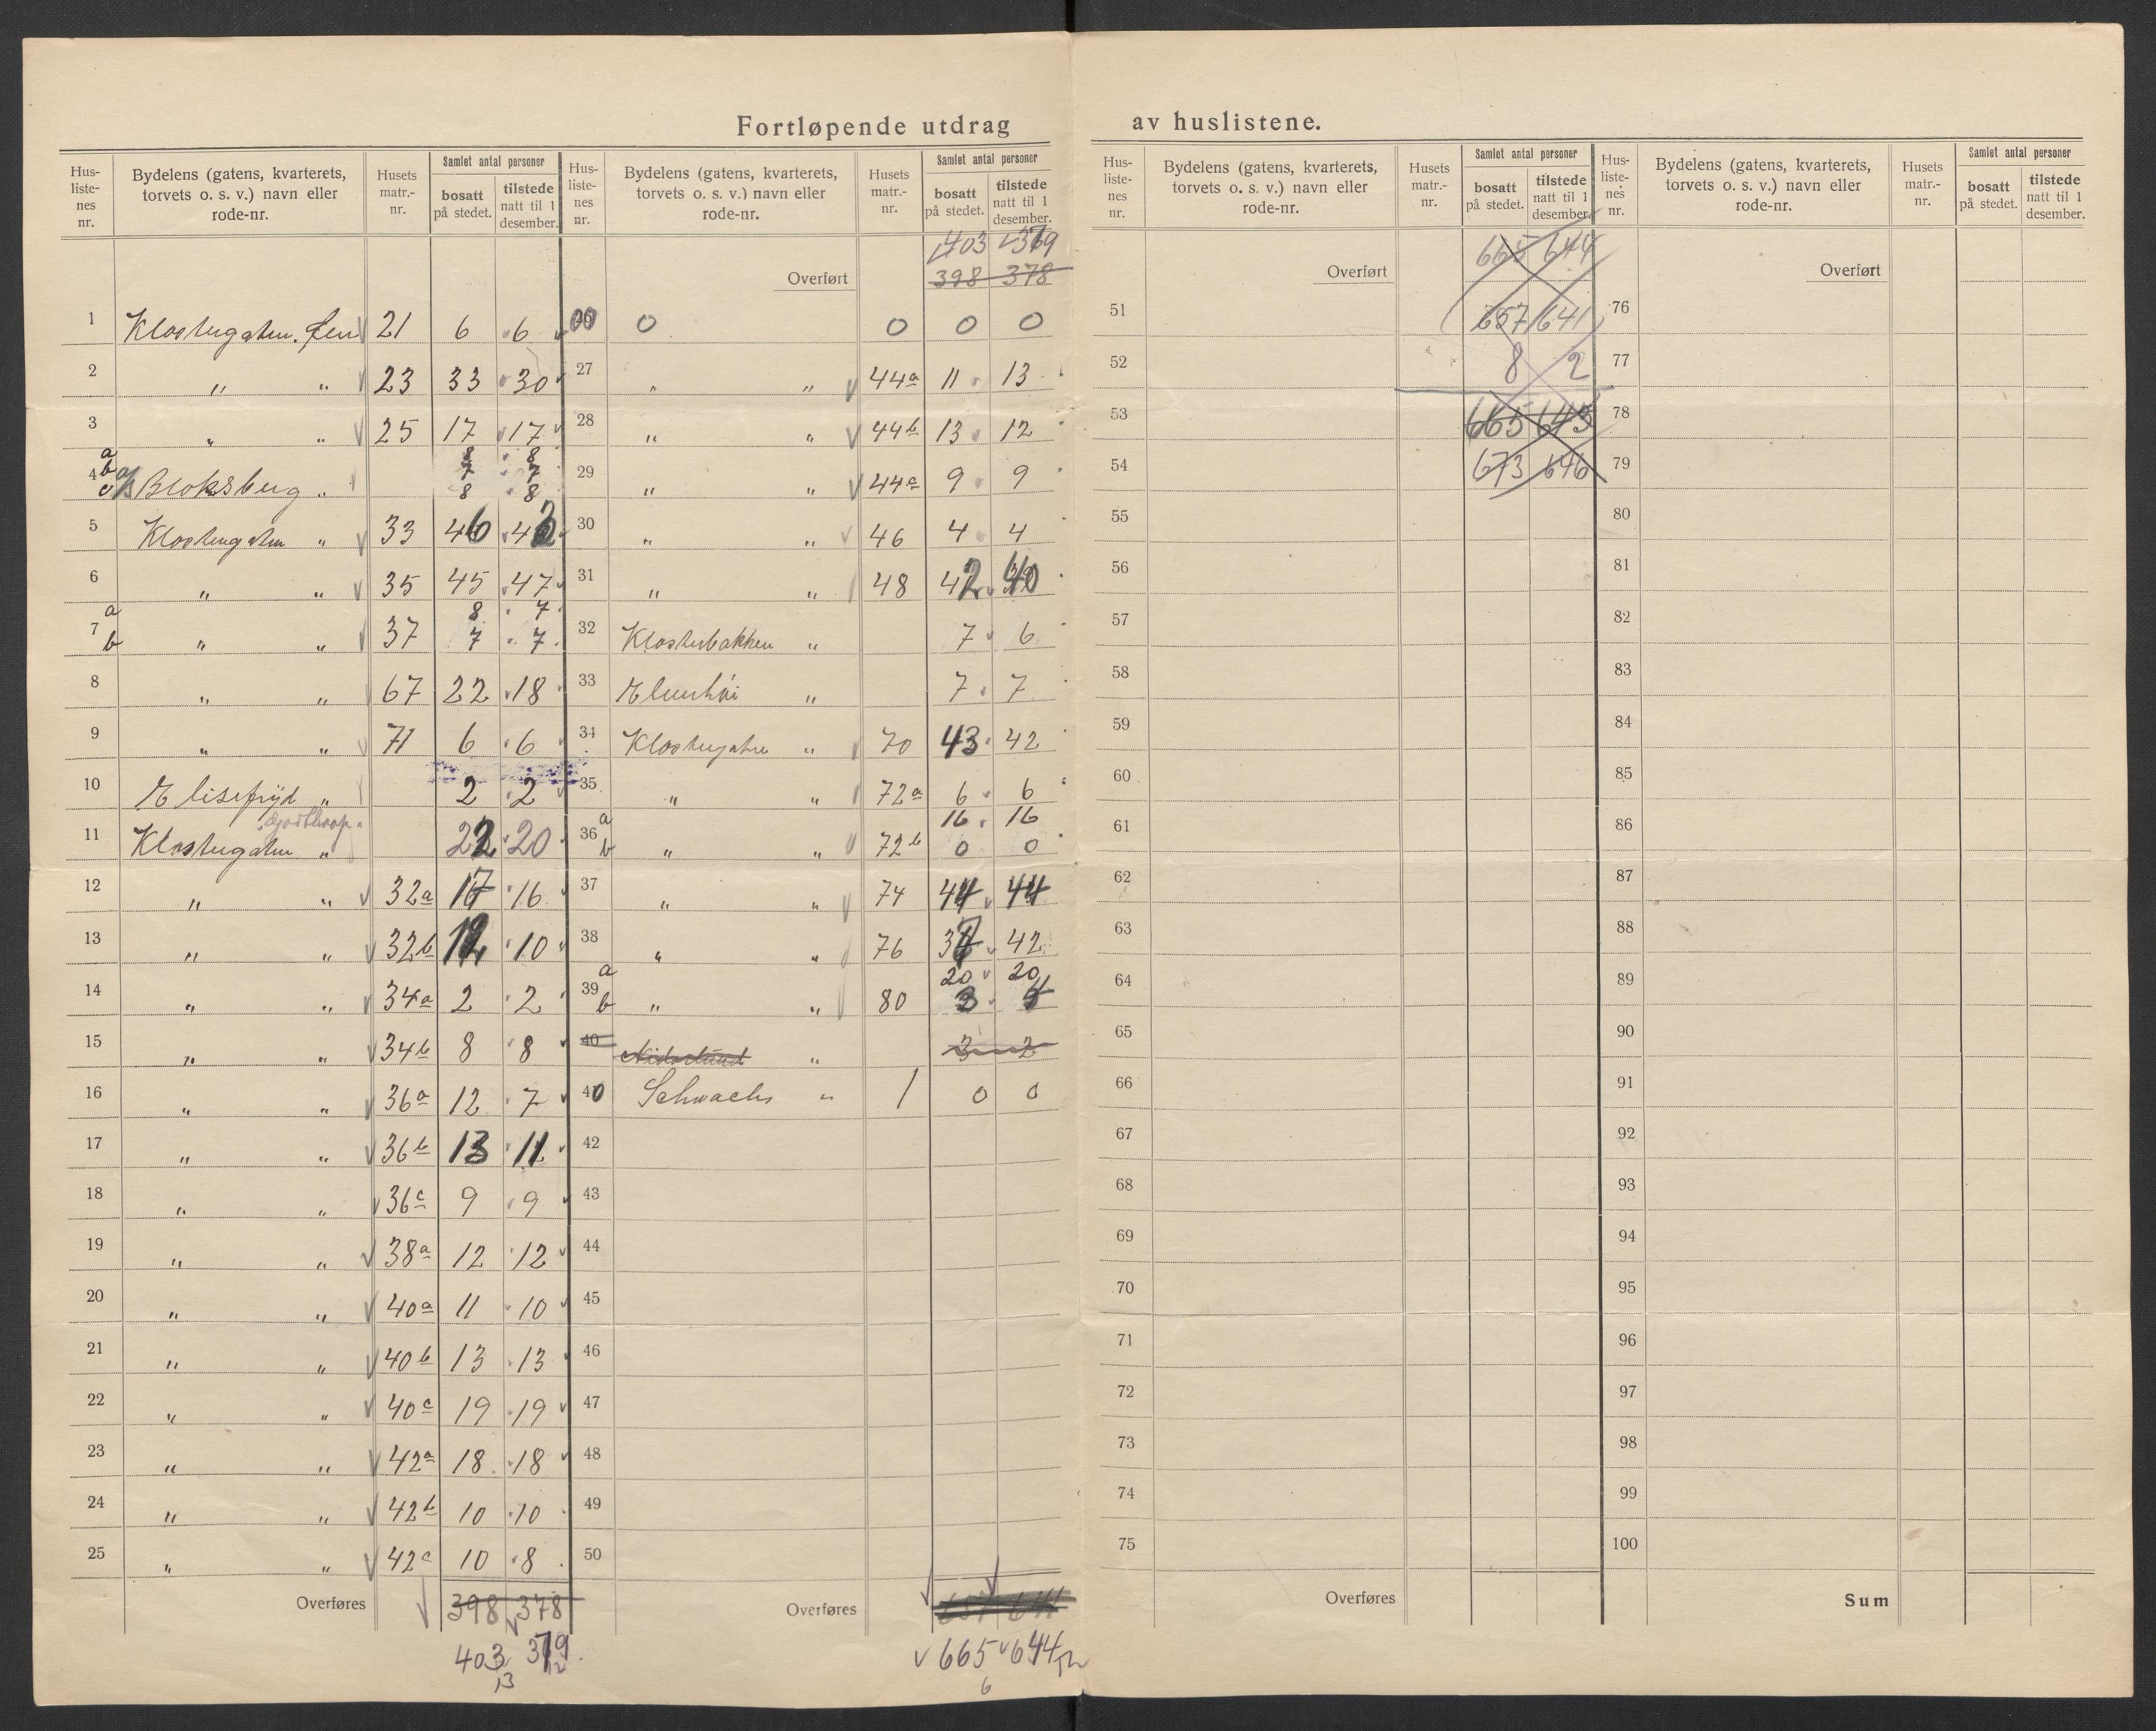 Fortløpende utdrag av huslistene.
Hus-listenes nr. Bydelens (gatens, kvarterets, torvets o. s. v.) navn eller rode-nr. Husets matr.-nr. Samlet antal personer bosatt på stedet. tilstede natt til 1 desember.
1 Klostergaten 21 6 6
2 " " 23 33 30
3 " " 25 17 17
4 a b c Bloksberg " 8 8 7 7 8 8
5 Klostergaten " 33 46 43
6 " " 35 45 47
7 a b " " 37 8 7 7 7
8 " " 67 22 18
9 " " 71 6 6
10 Elisefryd " 2 2
11 Klostergaten " 22 20
12 " " 32a 17 16
13 " " 32b 12 10
14 " " 34a 2 2
15 " " 34b 8 8
16 " " 36a 12 7
17 " " 36b 13 11
18 " " 36c 9 9
19 " " 38a 12 12
20 " " 40a 11 10
21 " " 40b 13 13
22 " " 40c 19 19
23 " " 42a 18 18
24 " " 42b 10 10
25 " " 42c 10 8
Overføres 398 378
403 379
13 12
Hus-listenes nr. Bydelens (gatens, kvarterets, torvets o. s. v.) navn eller rode-nr. Husets matr.-nr. Samlet antal personer bosatt på stedet. tilstede natt til 1 desember.
403 379
Overført 398 378
0 0 0 0
27 " " 44a 11 13
28 " " 44b 13 12
29 " " 44c 9 9
30 " " 46 4 4
31 " " 48 42 40
32 Klosterbakken " 7 6
33 " 7 7
34 Klostergaten " 70 43 42
35 " " 72a 6 6
36 a b " " 72b 16 16 0 0
37 " " 74 44 44
38 " " 76 37 42
39 a b " " 80 20 20 3 4
40 " 3 2
40 Schwachs " 1 0 0
42
43
44
45
46
47
48
49
50
Overføres 657 641
665 644
6
Hus-listenes nr. Bydelens (gatens, kvarterets, torvets o. s. v.) navn eller rode-nr. Husets matr.-nr. Samlet antal personer bosatt på stedet. tilstede natt til 1 desember.
665 644
Overført
51 657 641
52 8 2
53 665 643
54 673 646
55
56
57
58
59
60
61
62
63
64
65
66
67
68
69
70
71
72
73
74
75
Overføres
Hus-listenes nr. Bydelens (gatens, kvarterets, torvets o. s. v.) navn eller rode-nr. Husets matr.-nr. Samlet antal personer bosatt på stedet. tilstede natt til 1 desember.
Overført
76
77
78
79
80
81
82
83
84
85
86
87
88
89
90
91
92
93
94
95
96
97
98
99
100
Sum